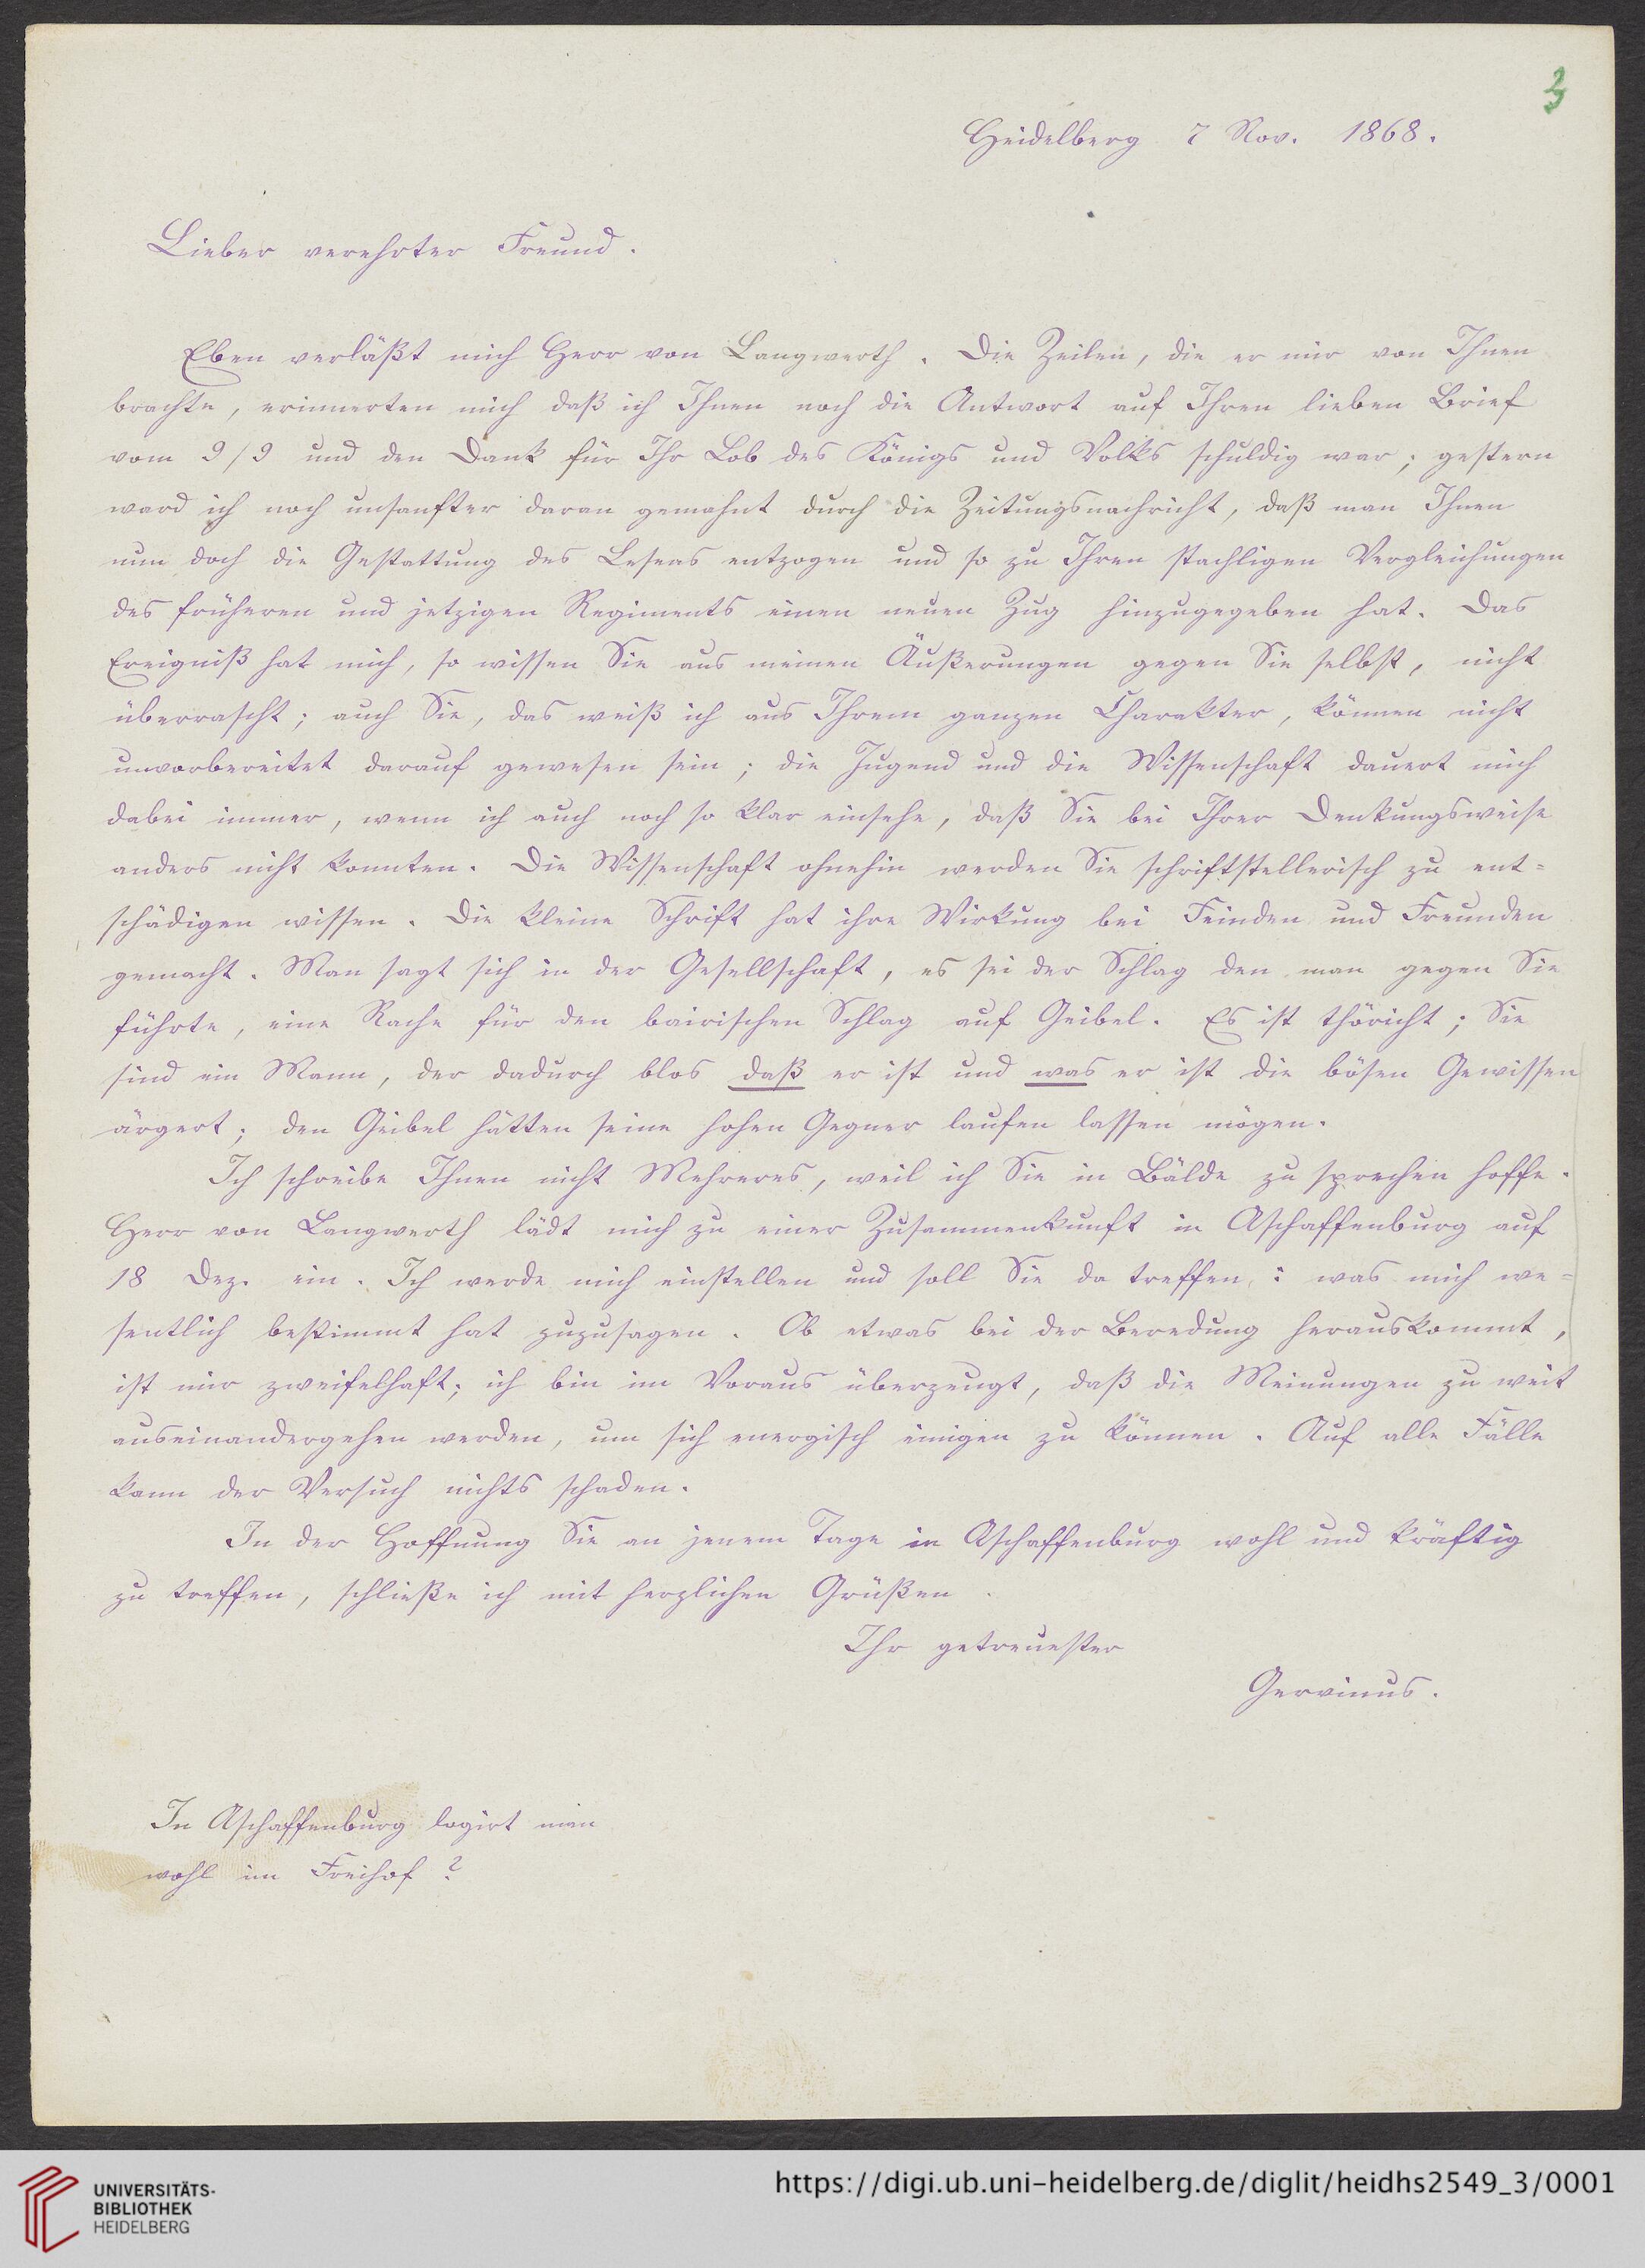 3
Heidelberg 7 Nov. 1868.
Lieber verehrter Freund.
Eben verläßt mich Herr von Langwerth. Die Zeilen, die er mir von Ihnen
brachte, erinnerten mich daß ich Ihnen noch die Antwort auf Ihren lieben Brief
vom 9/9 und den Dank für Ihr Lob des Königs und Volks schuldig war; gestern
ward ich noch unsanfter daran gemahnt durch die Zeitungsnachricht, daß man Ihnen
nun doch die Gestattung des Lesens entzogen und so zu Ihren stachligen Vergleichungen
des früheren und jetzigen Regiments einen neuen Zug hinzugegeben hat. Das
Ereigniß hat mich, so wissen Sie aus meinen Äußerungen gegen Sie selbst, nicht
überrascht; auch Sie, das weiß ich aus Ihrem ganzen Charakter, können nicht
unvorbereitet darauf gewesen sein; die Jugend und die Wissenschaft dauert mich
dabei immer, wenn ich auch noch so klar einsehe, daß Sie bei Ihrer Denkungsweise
anders nicht konnten. Die Wissenschaft ohnehin werden Sie schriftstellerisch zu ent=
schädigen wissen. Die kleine Schrift hat ihre Wirkung bei Feinden und Freunden
gemacht. Man sagt sich in der Gesellschaft, es sei der Schlag den man gegen Sie
führte, eine Rache für den bairischen Schlag auf Geibel. Es ist thöricht; Sie
sind ein Mann, der dadurch blos daß er ist und was er ist die bösen Gewissen
ärgert; den Geibel hätten seine hohen Gegner laufen lassen mögen.
Ich schreibe Ihnen nicht Mehreres, weil ich Sie in Bälde zu sprechen hoffe.
Herr von Langwerth lädt mich zu einer Zusammenkunft in Aschaffenburg auf
18 Dez. ein. Ich werde mich einstellen und soll Sie da treffen: was mich we=
sentlich bestimmt hat zuzusagen. Ob etwas bei der Beredung herauskommt,
ist mir zweifelhaft; ich bin im Voraus überzeugt, daß die Meinungen zu weit
auseinandergehen werden, um sich energisch einigen zu können. Auf alle Fälle
kann der Versuch nichts schaden.
In der Hoffnung Sie an jenem Tage in Aschaffenburg wohl und kräftig
zu treffen, schließe ich mit herzlichen Grüßen.
Ihr getreuester
Gervinus.
In Aschaffenburg logirt man
wohl im Freihof?
UNIVERSITÄTS-
BIBLIOTHEK
HEIDELBERG
https://digi.ub.uni-heidelberg.de/diglit/heidhs2549_3/0001